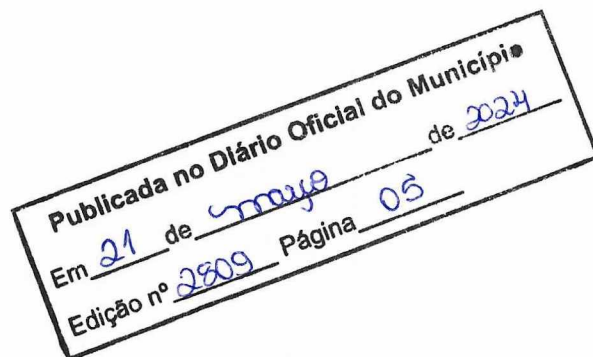 Publicada no Diário Oficial do Município
Em 21 de mayo de 2024
Edição nº 2809 Página 05